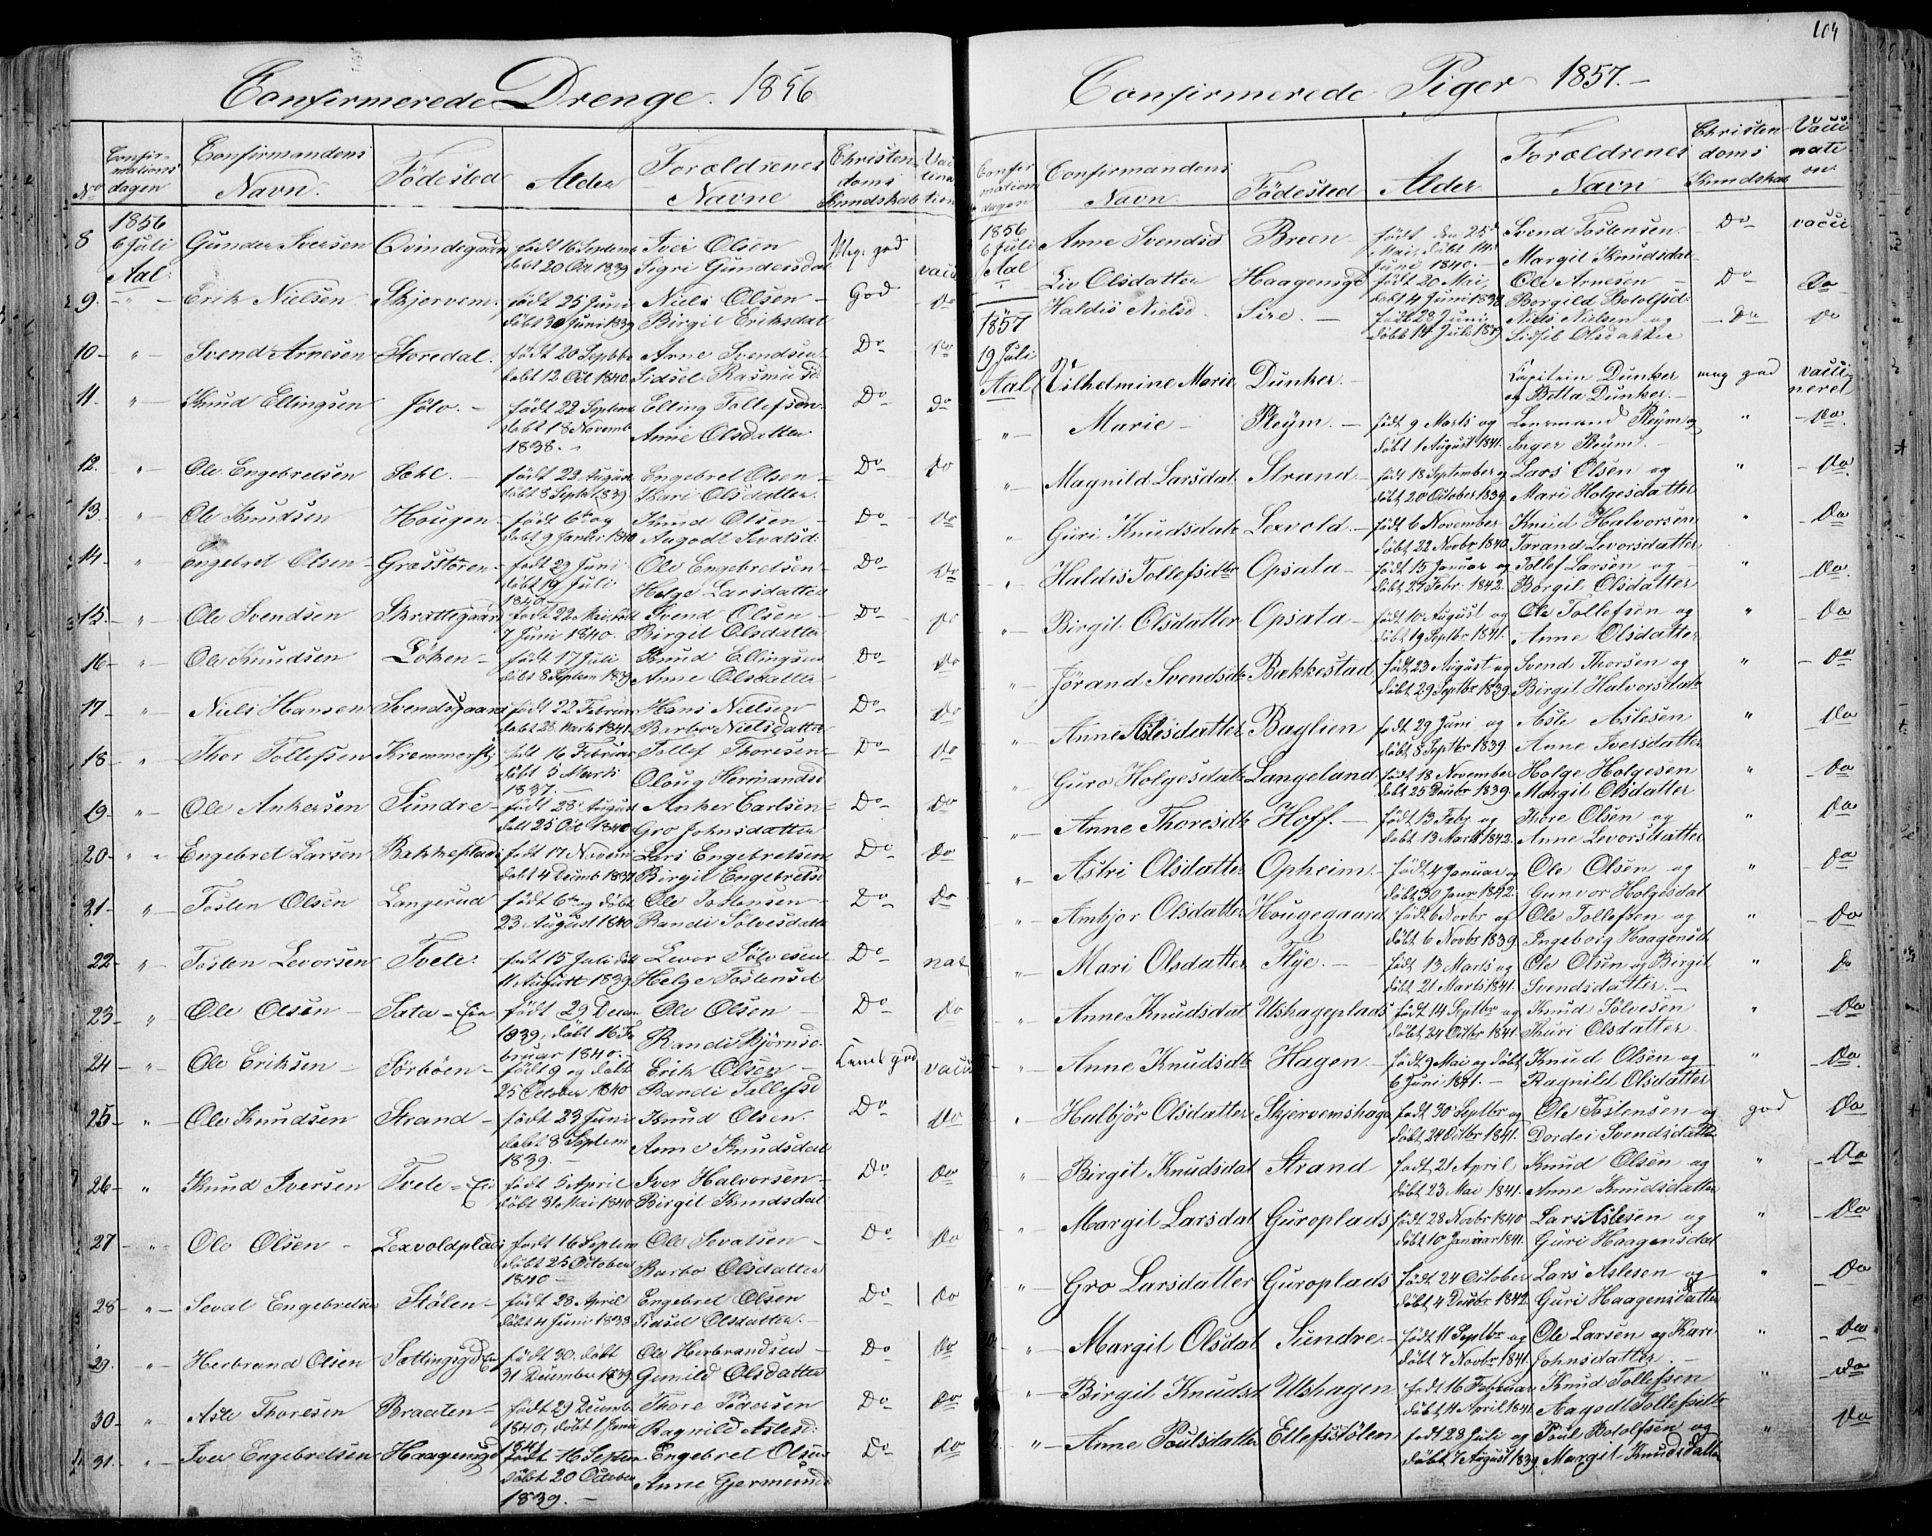 104
Confirmerede Drenge. 1856
No Confirmations dagen Confirmandens Navn. Födested Alder Forældrenes Navne Christendoms Kundskab
1856
8 6 Juli Gunder Iversen Qvindegaarn födt 16 Septemb Iver Olsen Meg. god
Aal döbt 20 Oct 1839 Sigri Gundersdat vacci
9 Erik Nielsen Skjervem. födt 25 Juni Niels Olsen God do
döbt 30 Juni 1839 Birgit Eriksdat
10 Svend Arnesen Storedal. födt 20 Septbr Arne Svendsen Do Do
döbt 12 Oct 1840. Sidsel Rasmusd
11 Knud Ellingsen Jölo. födt 22 Septem Elling Tollefsen Do do
döbt 18 Novemb Anne Olsdatter
1838.
12. Ole Engebretsen födt 22 August Engebret Olsen Do do
döbt 8 Septb 1839 Kari Olsdatter
13. Ole Knudsen Hougen födt 6te og Knud Olsen Do do
döbt 9 1840 Aagodt Sevatsd:
14 Engebret Olsen födt 29 Juni Ole Engebretsen Do Do
döbt 19 Juli Helge Larsdatter
1840
15. Ole Svendsen Skrattegaarn födt 22 Mai, döbt Svend Olsen Do do
7 Juni 1840. Birgit Olsdatter
16 Ole Knudsen Löken födt 17 Juli Knud Ellingsen Do do
döbt 8 Septem 1839 Anne Olsdatter
17 Niels Hansen Svendsgaarn födt 22 Februar Hans Nielsen Do do
döbt 28 Marts 1841. Barbo Nielsdatter
18 Thor Tollefsen födt 16 Februar Tollef Thoresen Do do
döbt 5 Marts Oloug Hermandsd
1837.
19 Ole Ankersen Sundre födt 28 August Anker Carlsen Do do
döbt 25 Oct 1840 Gro Johnsdatter
20 Engebret Larsen födt 17 Novem Lars Engebretsen Do do
döbt 4 Decemb 1837 Birgit Engebretsd
21 Tosten Olsen Langerud födt 6te og döbt Ole Tostensen Do Do
23 August 1840 Randi Sölvesdatter
22 Tosten Levorsen Tvete. födt 15 Juli döbt Levor Sölvesen Do nat
11 August 1839 Helge Tostensd
23 Ole Olsen Sata-Eie födt 29 Decem Ole Olsen Do do
1839, döbt 16 Februar 1840. Randi Björnsd
24 Ole Eriksen Sörböen födt 9 og döbt Erik Olsen god vacci
25 October 1840 Randi Tollefsd
25 Ole Knudsen Strand födt 23 Juni Knud Olsen Do do
döbt 8 Septem Anne Knudsdat
1839.
26 Knud Iversen Tvete-Ei födt 5 April Iver Halvorsen Do do
döbt 31 Mai 1840 Birgit Knudsdat
27 Ole Olsen födt 16 Septem Ole Sevatsen Do do
döbt 25 October Barbo Olsdatter
1840
28 Sevat Engebretsen Stölen födt 28 April Engebret Olsen Do do
döbt 4 Juni 1838 Sidsel Olsdatter.
29. Herbrand Olsen födt 30. döbt Ole Herbrandsen Do do
31 December 1839 Gunild Olsdatter
30 Asle Thoresen Braaten födt 29 Decemb Thore Pedersen Do do
1840, döbt 1 Janu Ragnild Aslesd:
1841
31. Iver Engebretsen Haagensgd födt 16 Septem Engebret Olsen Do do
döbt 20 October Anne Gjermunds
1839.
Confirmerede Piger 1857.
Confirmations dagen Confirmandens Navn Födested Alder Forældrenes Navn Christendoms Kundskab Vaccination
1856
6 Juli Anne Svendsd Breen födt den 25de Svend Tostensen Do vacci
Aal Mai, döbt 14 Juni 1840. Margit Knudsdat
Liv Olsdatter Haagensgd födt 20 Mai, Ole Arnesen Do Do
döbt 4 Juni 1838 Borgild Botolfsd
1857 Haldis Nielsd Sire. födt 28 Juni Niels Nielsen og Do do
döbt 14 Juli 1839 Sidsel Olsdatter
19 Juli
Aal Vilhelmine Marie Dunker. Capitein Dunker meg god vaccineret
og Betta Dunker.
Marie Pleym. födt 9 Marts og Lensmand Pleym og " Do
döbt 1 August 1841. Inger Pleym.
Magnild Larsdat Strand födt 18 September og Lars Olsen og " Do
döbt 20 October 1839. Mari Holgesdatter
Guri Knudsdatr Lexvold födt 6 November Knud Halvorsen " Do
döbt 22 Novbr 1840. Jorand Levorsdatter
Haldis Tollefsdtr Opsata födt 15 Januar og Tollef Larsen og " Do
döbt 27 Febr. 1842. Borgil Olsdatter
Birgit Olsdatter Opsata födt 10 August og Ole Tollefsen og " Do
döbt 19 Septbr 1841. Anne Olsdatter
Jörand Svendsdtr Bakkestad födt 23 August og Svend Thorsen og " Do
döbt 29 Septbr 1839 Birgit Halvorsdatr
Anne Aslesdatter Baglien födt 29 Juni og Asle Aslesen Do
döbt 8 Septbr 1839 Anne Iversdatter
Guro Holgesdatr Langeland födt 18 November Holge Holgesen " Do
döbt 25 Decbr 1839. Margit Olsdatter
Anne Thoresdtr Hoff. födt 13 Feby og Thore Olsen og " Do
döbt 13 Marts 1842. Anne Levorsdatter
Astri Olsdatter Opheim. födt 4 Januar og Ole Olsen og " Do
döbt 30 Janr 1842. Gunvor Holgesdat
Ambjor Olsdatter Hougegaard födt 6 Novbr og Ole Tollefsen og " Do
döbt 6 Novbr 1839. Ingeborg Haagensdt
Mari Olsdatter Flye. födt 13 Marts og Ole Olsen og Birgit " Do
döbt 21 Marts 1841. Svendsdatter.
Anne Knudsdat Ulshageplads födt 14 Septbr og Knud Sölvesen " Do
döbt 24 Octbr 1841. Thuri Olsdatter.
Anne Knudsdtr Hagen födt 9 Mai og döbt Knud Olsen og " Do
6 Juni 1841. Ragnild Olsdatter
Halbjör Olsdatter Skjervemshage födt 30 Septbr og Ole Tostensen og god Do
döbt 24 Octbr 1841. Dordei Svendsdatter
Birgit Knudsdat Strand födt 21 April Knud Olsen og " Do
döbt 23 Mai 1841. Anne Knudsdatter
Margit Larsdat Guroplads födt 28 Novbr 1840 Lars Aslesen og " Do
döbt 10 Januar 1841. Guri Haagensdat
Gro Larsdatter Guroplads födt 24 October Lars Aslesen og " Do
döbt 4 Decbr 1842. Guri Haagensdatter
Margit Olsdat Sundre födt 11 Septbr og Ole Larsen og Kari " Do
döbt 7 Novbr 1841. Johnsdatter.
Birgit Knudsd Ulshagen födt 16 Februar Knud Tollefsen " Do
döbt 11 April 1841. Aagodt Tollefsdtr
Anne Poulsdatter Ellefsstölen födt 28 Juli og Poul Botolfsen og " Do
döbt 7 August 1839. Margit Knudsdatter